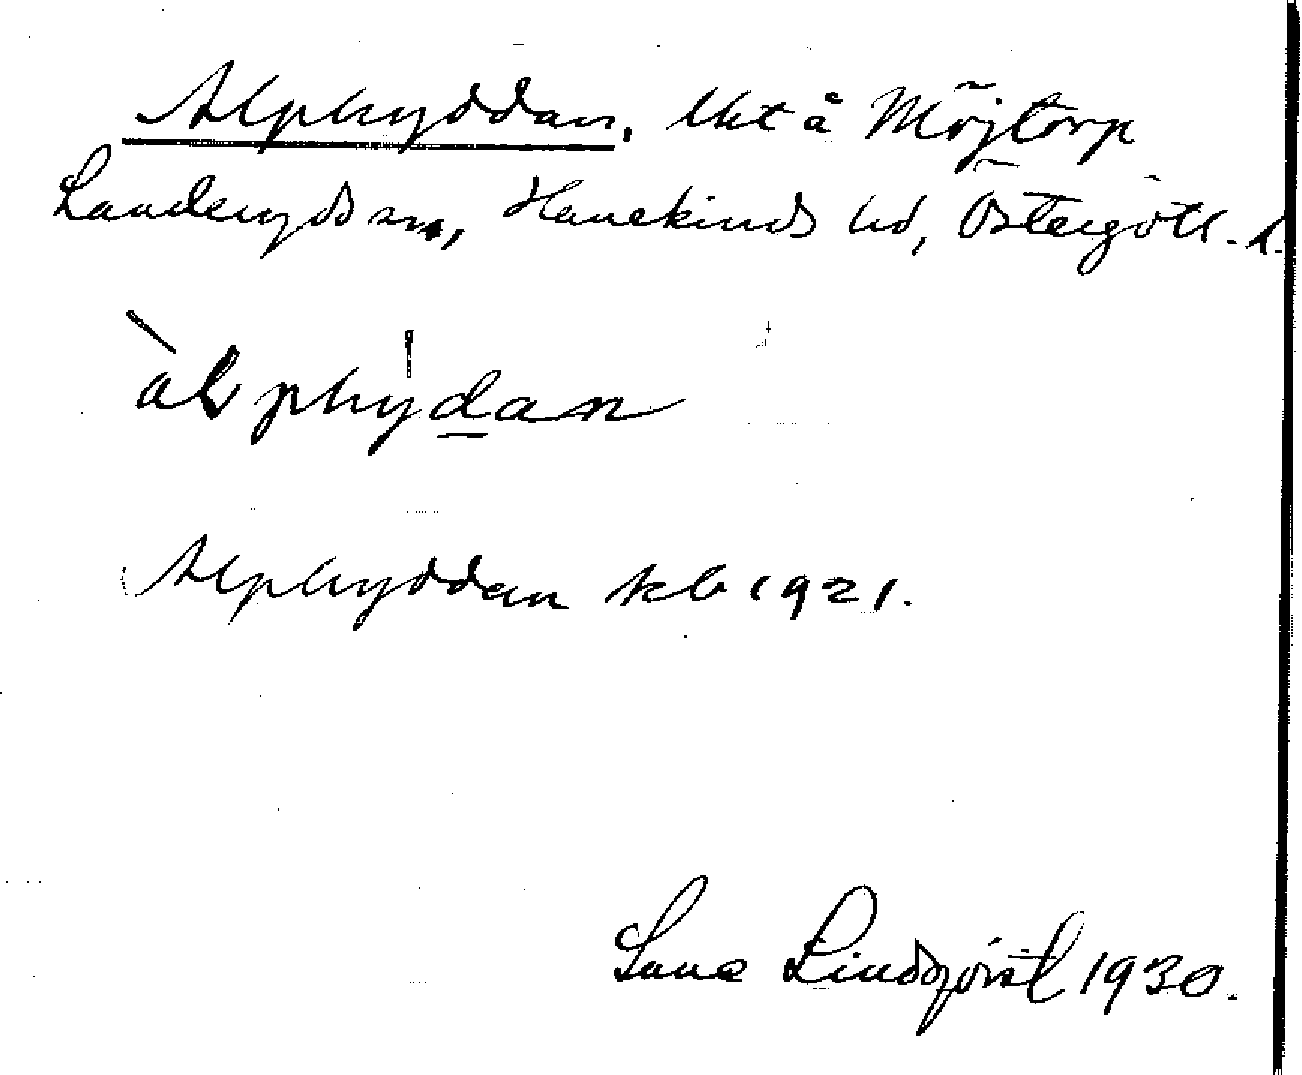 Alphyddan, lht å Möjtorp
Landeryds sn, Hanekinds hd, Östergötl. l.
àlphýdan
Alphyddan kb 1921.
Sune Lindqvist 1930.